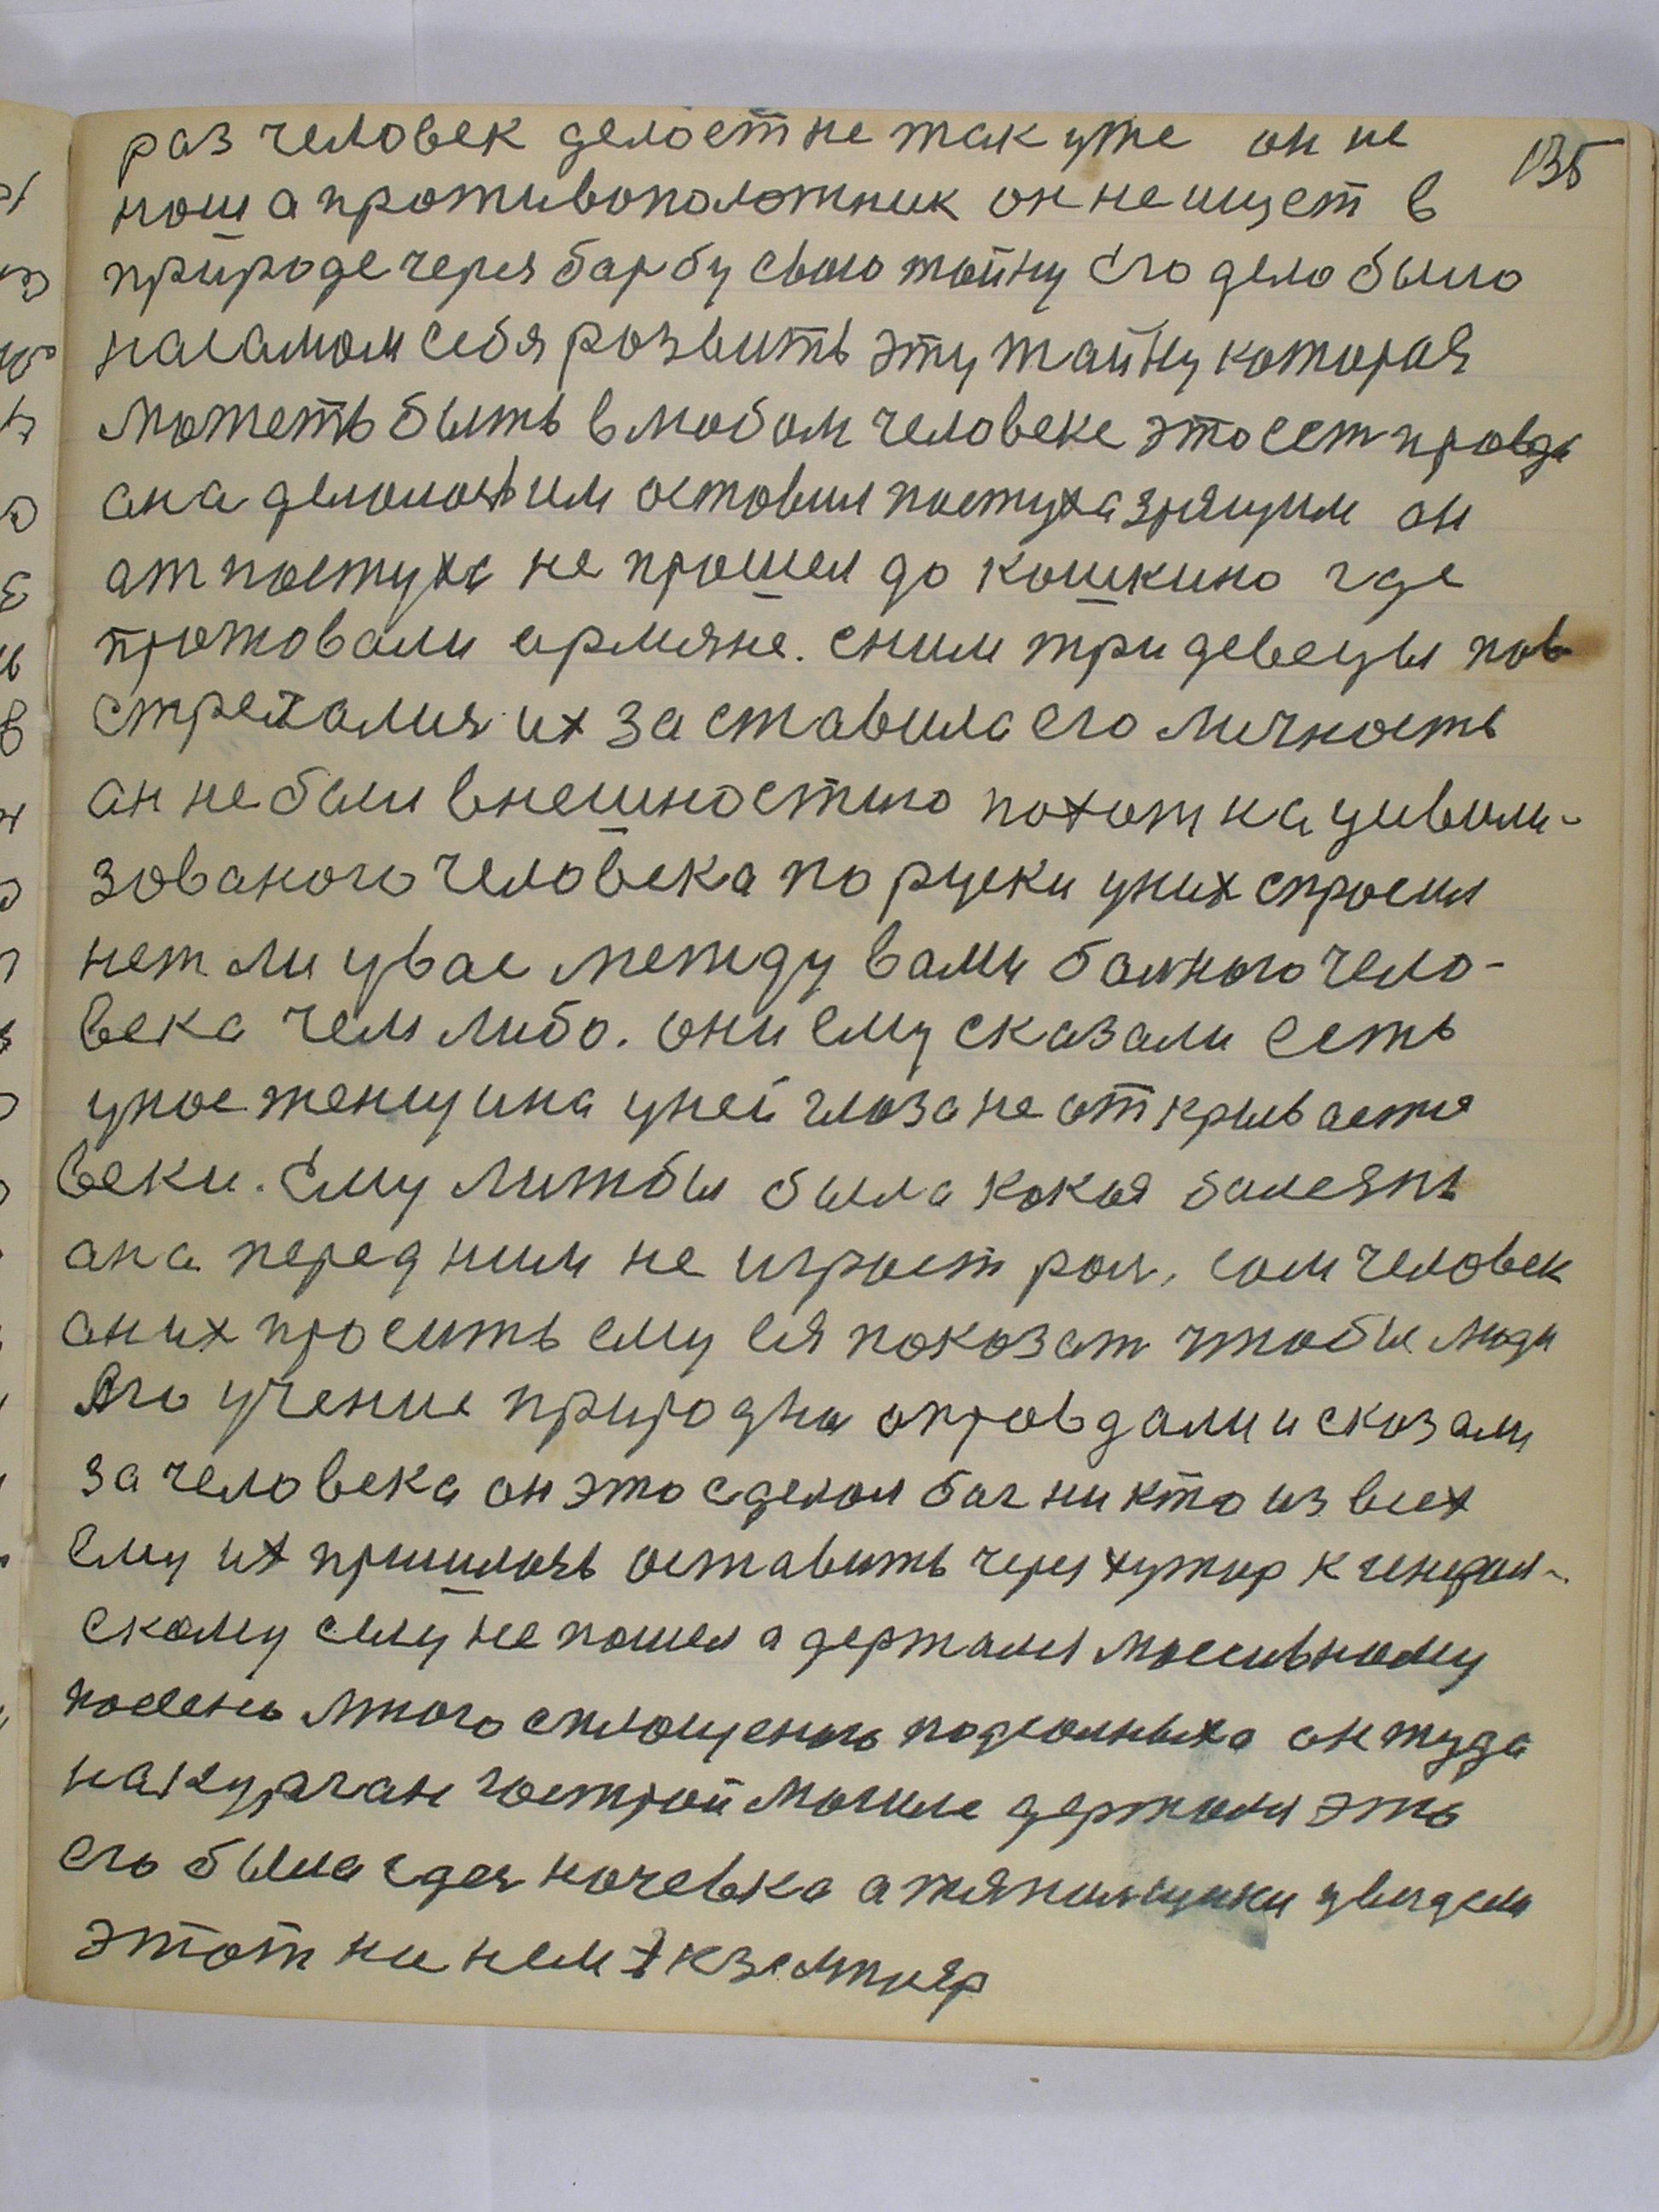 135
раз человек делоет не так уже он не
наш а противоположник он не ищет в
природе через барбу свою тойну его дело было
на самом себя розвить эту тайну которая
можеть быть в любом человеке это ест провда
ана делолось им оставил пастуха зрящим он
ат пастуха не прошел до кошкино где
прожовали армяне. с ним три девецы пов
стречолися их заставила его личность
ан не был внешностью похож на цивили-
зованого человека по руски у них спросил
нет ли у вас между вами болного чело-
века чем либо. они ему сказали есть
у нас женщина у ней глоза не открываетя
веки. ему лижбы была кокоя болезнь
ана перед ним не ироет рол. сом человек
он их просить ему ея покозат чтобы люди
его учение природны опровдали и сказали
за человека он это сделол бог никто из всех
ему их пришлось оставить через хутор к генерал-
скому селу не пошел а держался массивному
много он туда
на курган гострой могиле держолся это
его была сдея ночевка а
этот на нем экземпляр